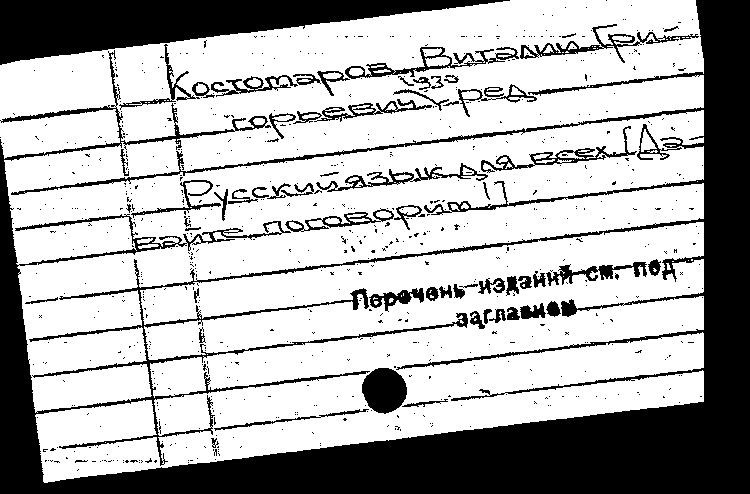 Костомаров, Виталий Гри-
1930
горьевич, ред.
Русский язык для всех [Да-
вайте поговорим!]
Перечень изданий см. под
заглавием